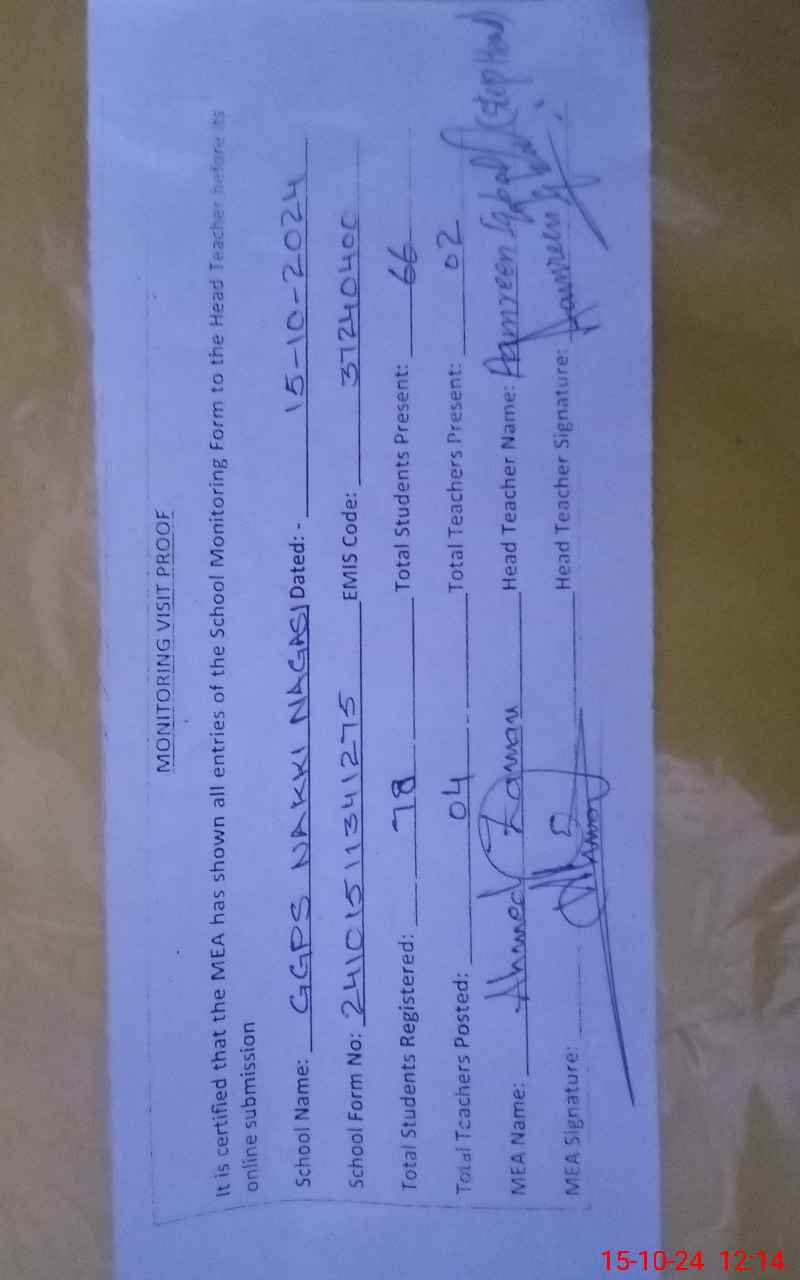 MONITORING VISIT PROOF
It is certified that the MEA has shown all entries of the School Monitoring Form to the Head Teacher before its
online submission
School Name: GGPS NAKKI NAGASI Dated: - 15-10-2024
School Form No: 24101511341275 EMIS Code: 37240400
Total Students Registered: 78 Total Students Present: 66
Total Teachers Posted: 04 Total Teachers Present: 02
MEA Name: Ahmed Zaman Head Teacher Name: Aamreen Iqbal
MEA Signature: Head Teacher Signature: Aamreen
15-10-24 12:14